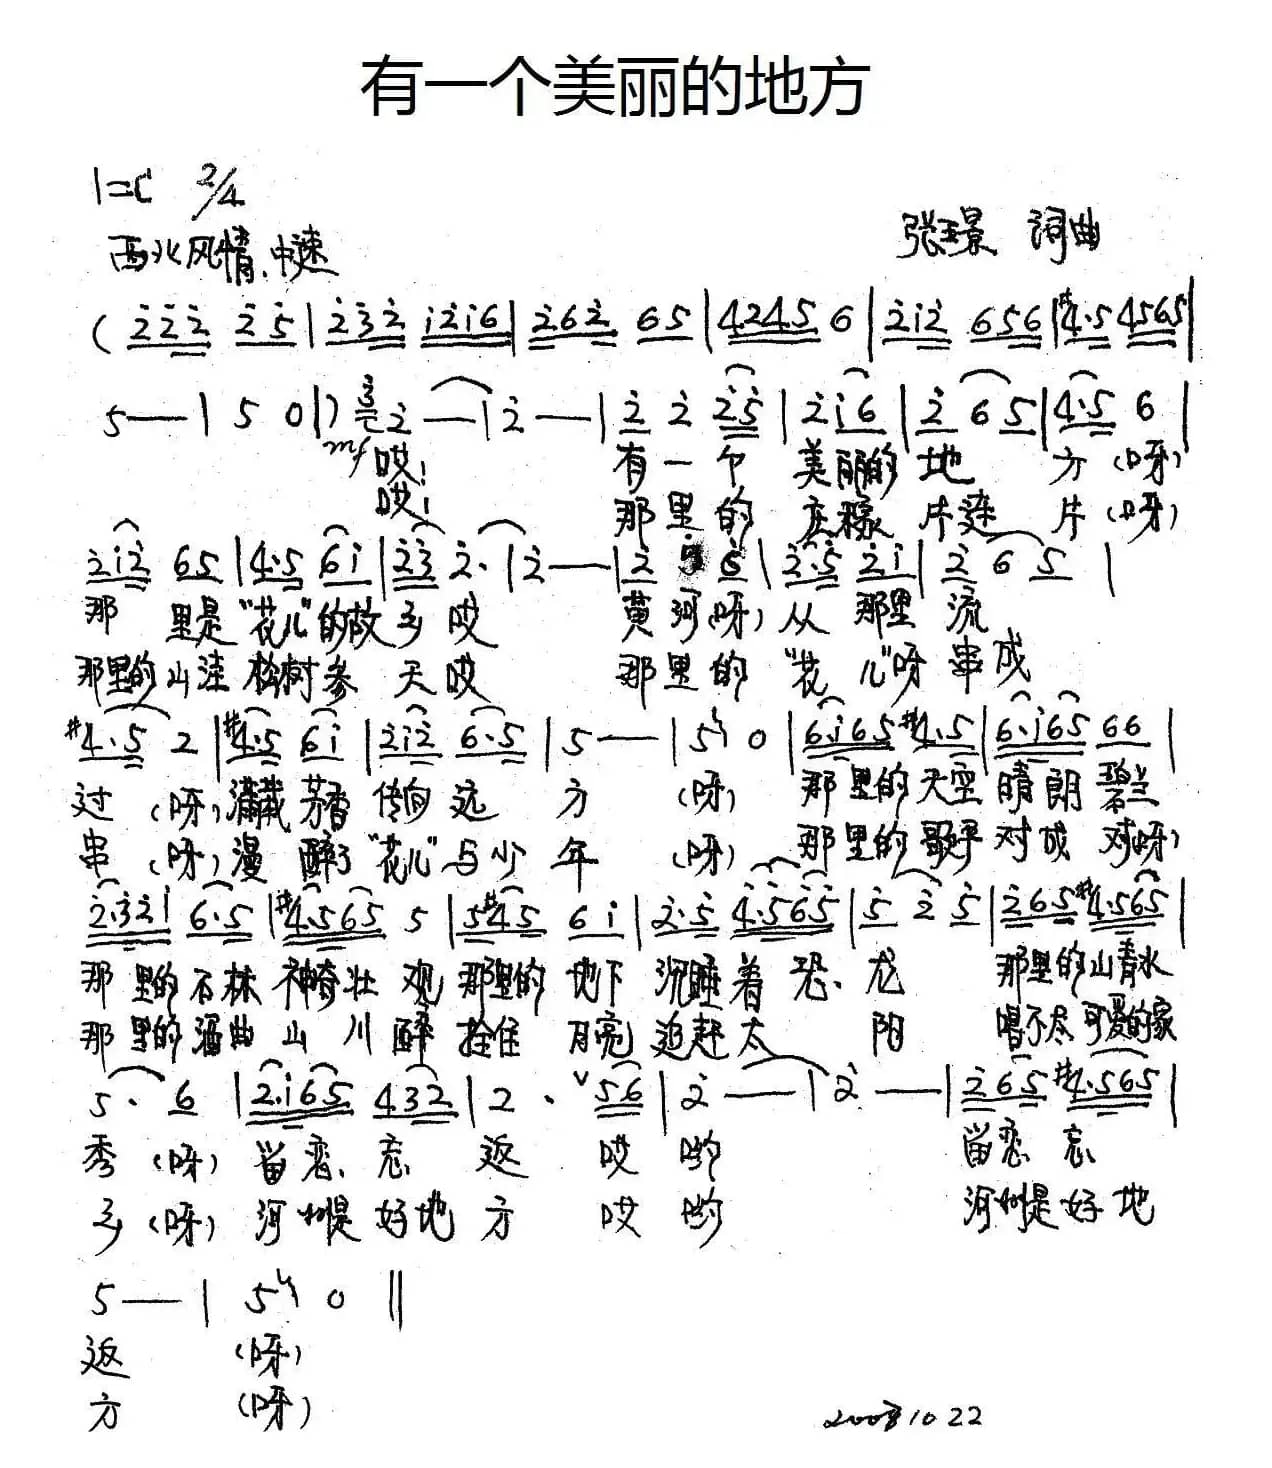 有一个美丽的地方
1=C 2/4
张璟 词曲
西北风情、中速
( 2̇2̇2̇ 2̇5̇ | 2̇3̇2̇ i2̇i6 | 2̇62̇ 65 | 4245 6 | 2̇i2̇ 656 | #4·5 4565 |
5 — | 5 0 | ) 2̇ — | 2̇ — | 2̇ 2̇ 2̇5̇ | 2̇ i6 | 2̇ 6 5 | 4·5 6 |
mf 哎! 有一个 美丽的 地 方 (呀)
哎! 那里的 庄稼 片连 片 (呀)
2̇i2̇ 65 | 4·5 6i | 2̇3̇ 2̇· | 2̇ — | 2̇ 5̇ 6 | 2̇·5̇ 2̇i | 2̇ 6 5 |
那 里是 "花儿"的故 乡 哎 黄河(呀) 从 那里 流
那里的 山洼 松树参 天 哎 那里的 "花 儿"呀 串成
#4·5 2 | #4·5 6i | 2̇i2̇ 6·5 | 5 — | 5 0 | 6·i65 #4·5 | 6·i65 66 |
过 (呀) 满载 芳香 传向 远 方 (呀) 那里的 天空 晴朗 碧兰
串 (呀) 漫 醉了 "花儿"与少 年 (呀) 那里的 歌手 对成 对(呀)
2̇·3̇2̇i 6·5 | #4·565 5 | 5#45 6i | 2̇·5̇ 4̇·5̇6̇5̇ | 5̇ 2̇ 5̇ | 2̇65 #4·565 |
那 里的 石林 神奇壮 观 那里的 地下 沉睡着 恐 龙 那里的 山青水
那 里的 酒曲 山 川 醉 拴住 月亮 追赶太 阳 唱不尽 可爱的家
5 · 6 | 2̇·i65 432 | 2 · ∨ 56 | 2̇ — | 2̇ — | 2̇65 #4·565 |
秀 (呀) 留恋 忘 返 哎 哟 留恋 忘
乡 (呀) 河州是 好地 方 哎 哟 河州是 好 地
5 — | 5 0 ‖
返 (呀)
方 (呀)
2008 10 22